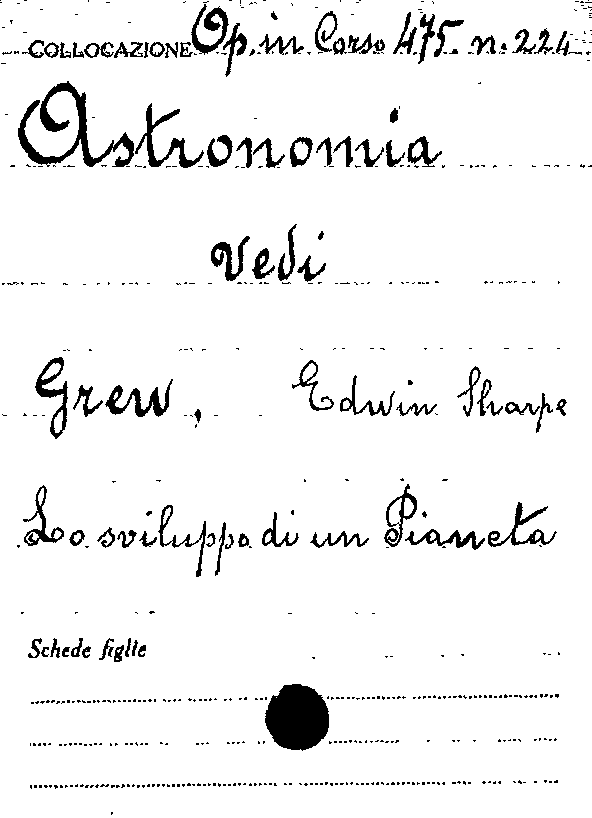 COLLOCAZIONE Op. in Corso 475. n. 224
Astronomia
Vedi
Grew, Edwin Sharpe
Lo sviluppo di un Pianeta
Schede figlie